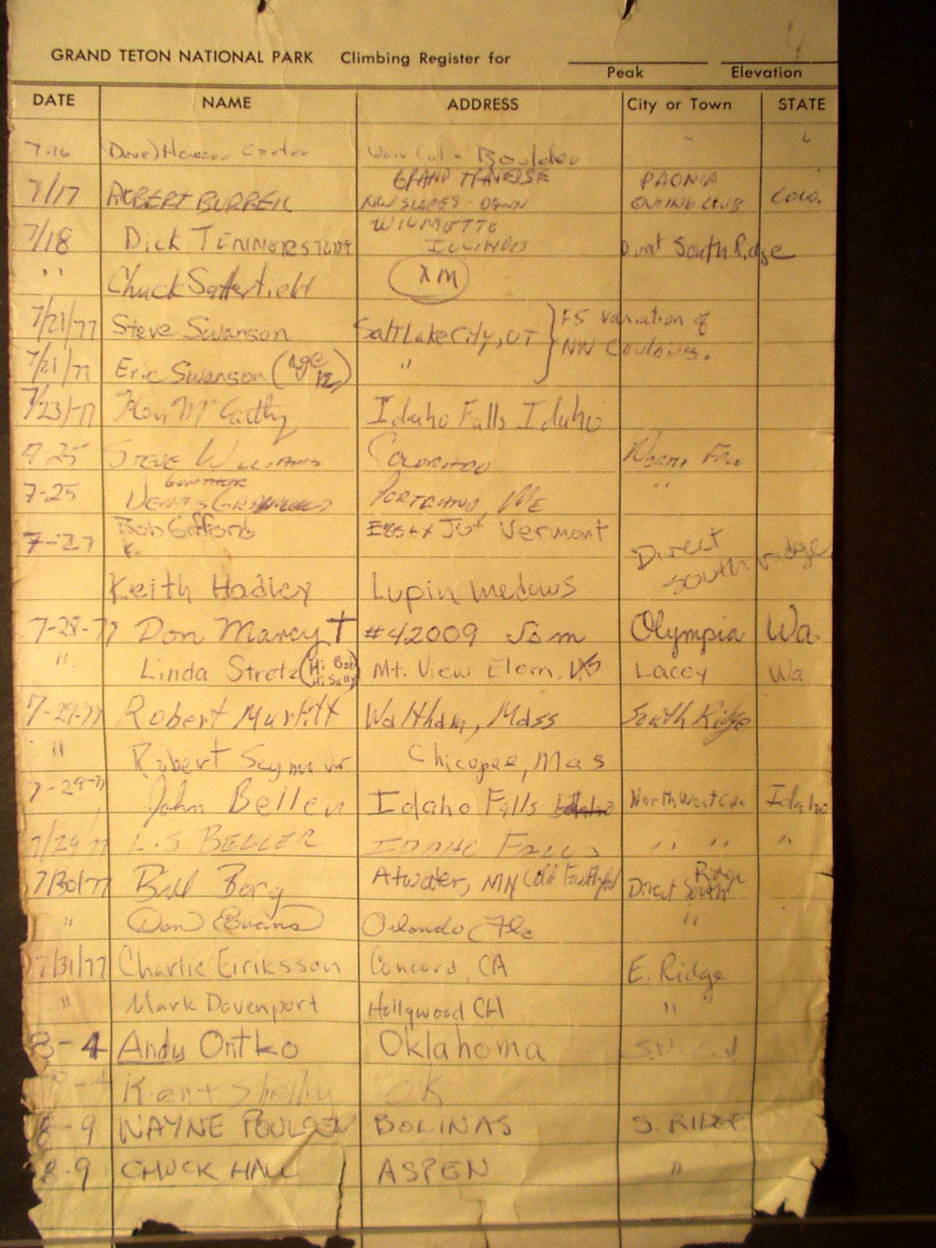 GRAND TETON NATIONAL PARK Climbing Register for
Peak Elevation
DATE NAME ADDRESS City or Town STATE
7-16 (Dave) Howard Univ Col - Boulder
GRAND TRAVERSE PAONIA
7/17 ROBERT BURRELL NW SLOPES - DOWN OUTING CLUB Colo.
WILMETTE
7/18 Dick ILLINOIS Direct South Ridge
" Chuck Satterfield XM
7/21/77 Steve Swanson Salt Lake City, UT } F5 Variation of
7/21/77 Eric Swanson (age 12) " NW Couloirs.
7/23/77 Idaho Falls Idaho
7-25 STEVE WILLIAMS COLORADO North Face
7-25 DENNIS PORTLAND, ME "
7-27 Bob Gifford Essex Jct Vermont Direct
South ridge
Keith Hadley Lupin Medows
7-28-77 Don Marcy #42009 Olympia Wa
" Linda Stretz (Hi Bob Hi Sally) Mt. View Elem. Lacey Wa
7-29-77 Robert Waltham, Mass South Ridge
" Robert Chicopee, Mas
7-29-77 John Beller Idaho Falls Idaho NorthWest Idaho
7/29/77 L.S BELLER IDAHO FALLS " " "
7/30/77 Bill Berg Atwater, MN (Old Faithful) Direct South Ridge
" Don Evans Orlando, Fla "
7/31/77 Charlie Eiriksson Concord, CA E. Ridge
" Mark Davenport Hollywood CA "
8-4 Andy Ontko Oklahoma
8-4 Kent Shelby OK
8-9 WAYNE POULSEN BOLINAS S. RIDGE
8-9 CHUCK HALL ASPEN "